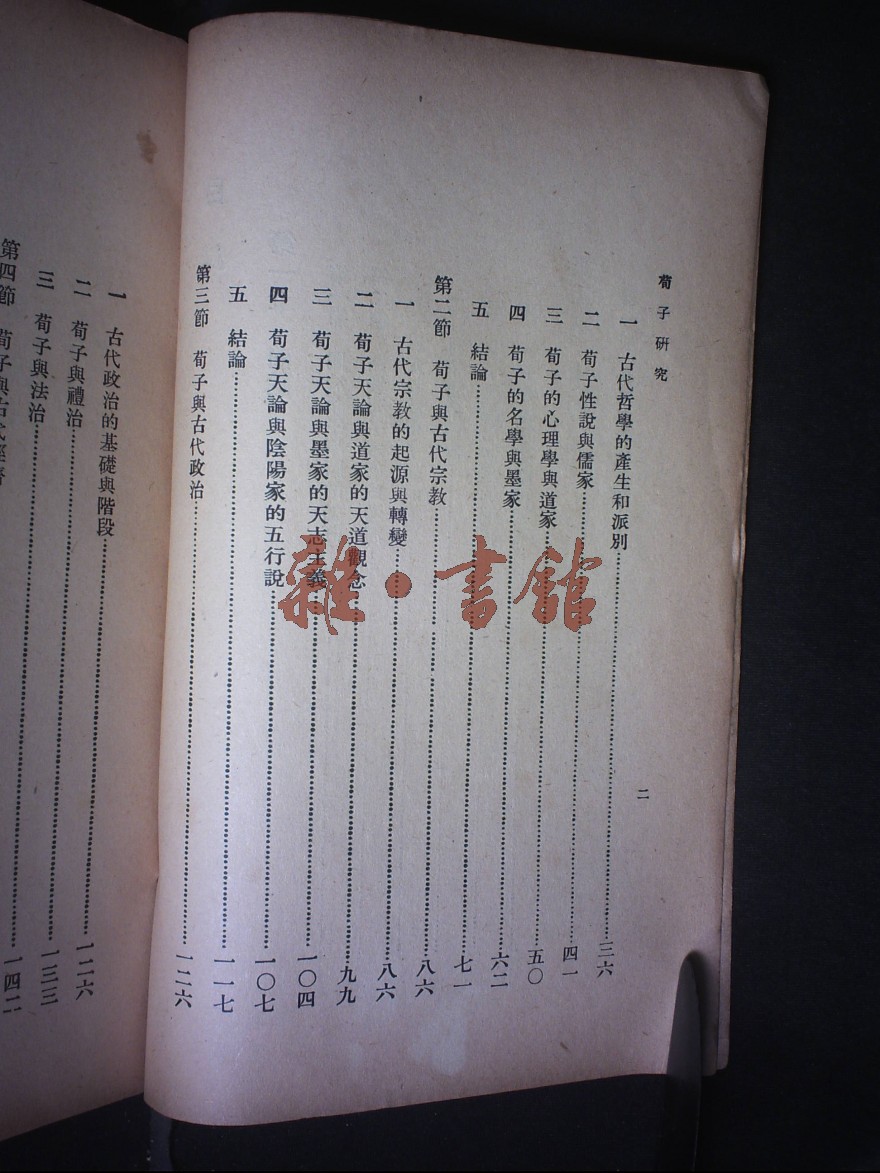 荀子研究
二
一　古代哲學的產生和派別……三六
二　荀子性說與儒家……四一
三　荀子的心理學與道家……五〇
四　荀子的名學與墨家……六二
五　結論……七一
第二節　荀子與古代宗教……八六
一　古代宗教的起源與轉變……八六
二　荀子天論與道家的天道觀念……九九
三　荀子天論與墨家的天志主義……一〇四
四　荀子天論與陰陽家的五行說……一〇七
五　結論……一一七
第三節　荀子與古代政治……一二六
一　古代政治的基礎與階段
二　荀子與禮治……一二六
三　荀子與法治……一三三
第四節　荀子與古代經濟……一四二
雜·書館